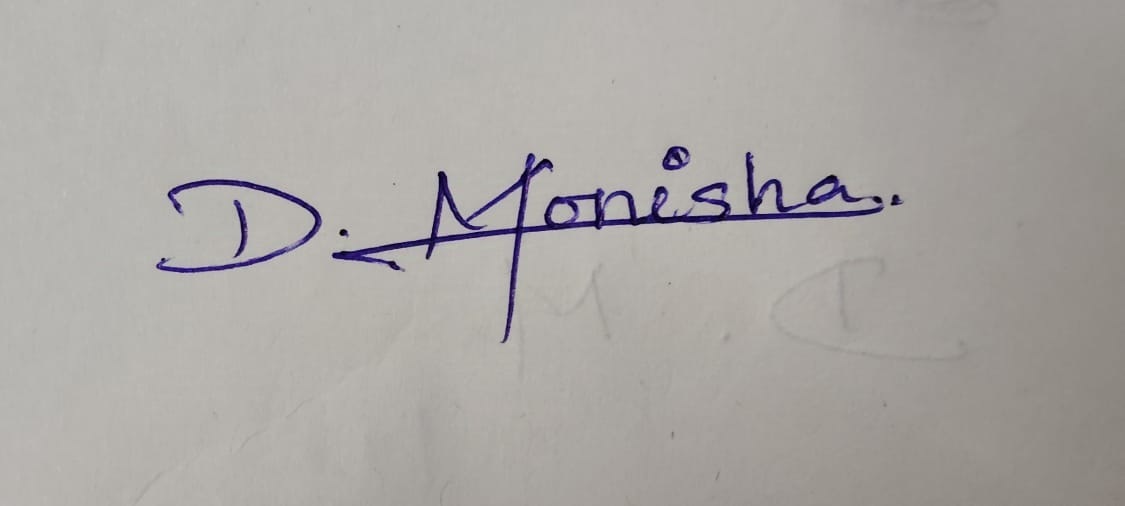 D. Monisha..